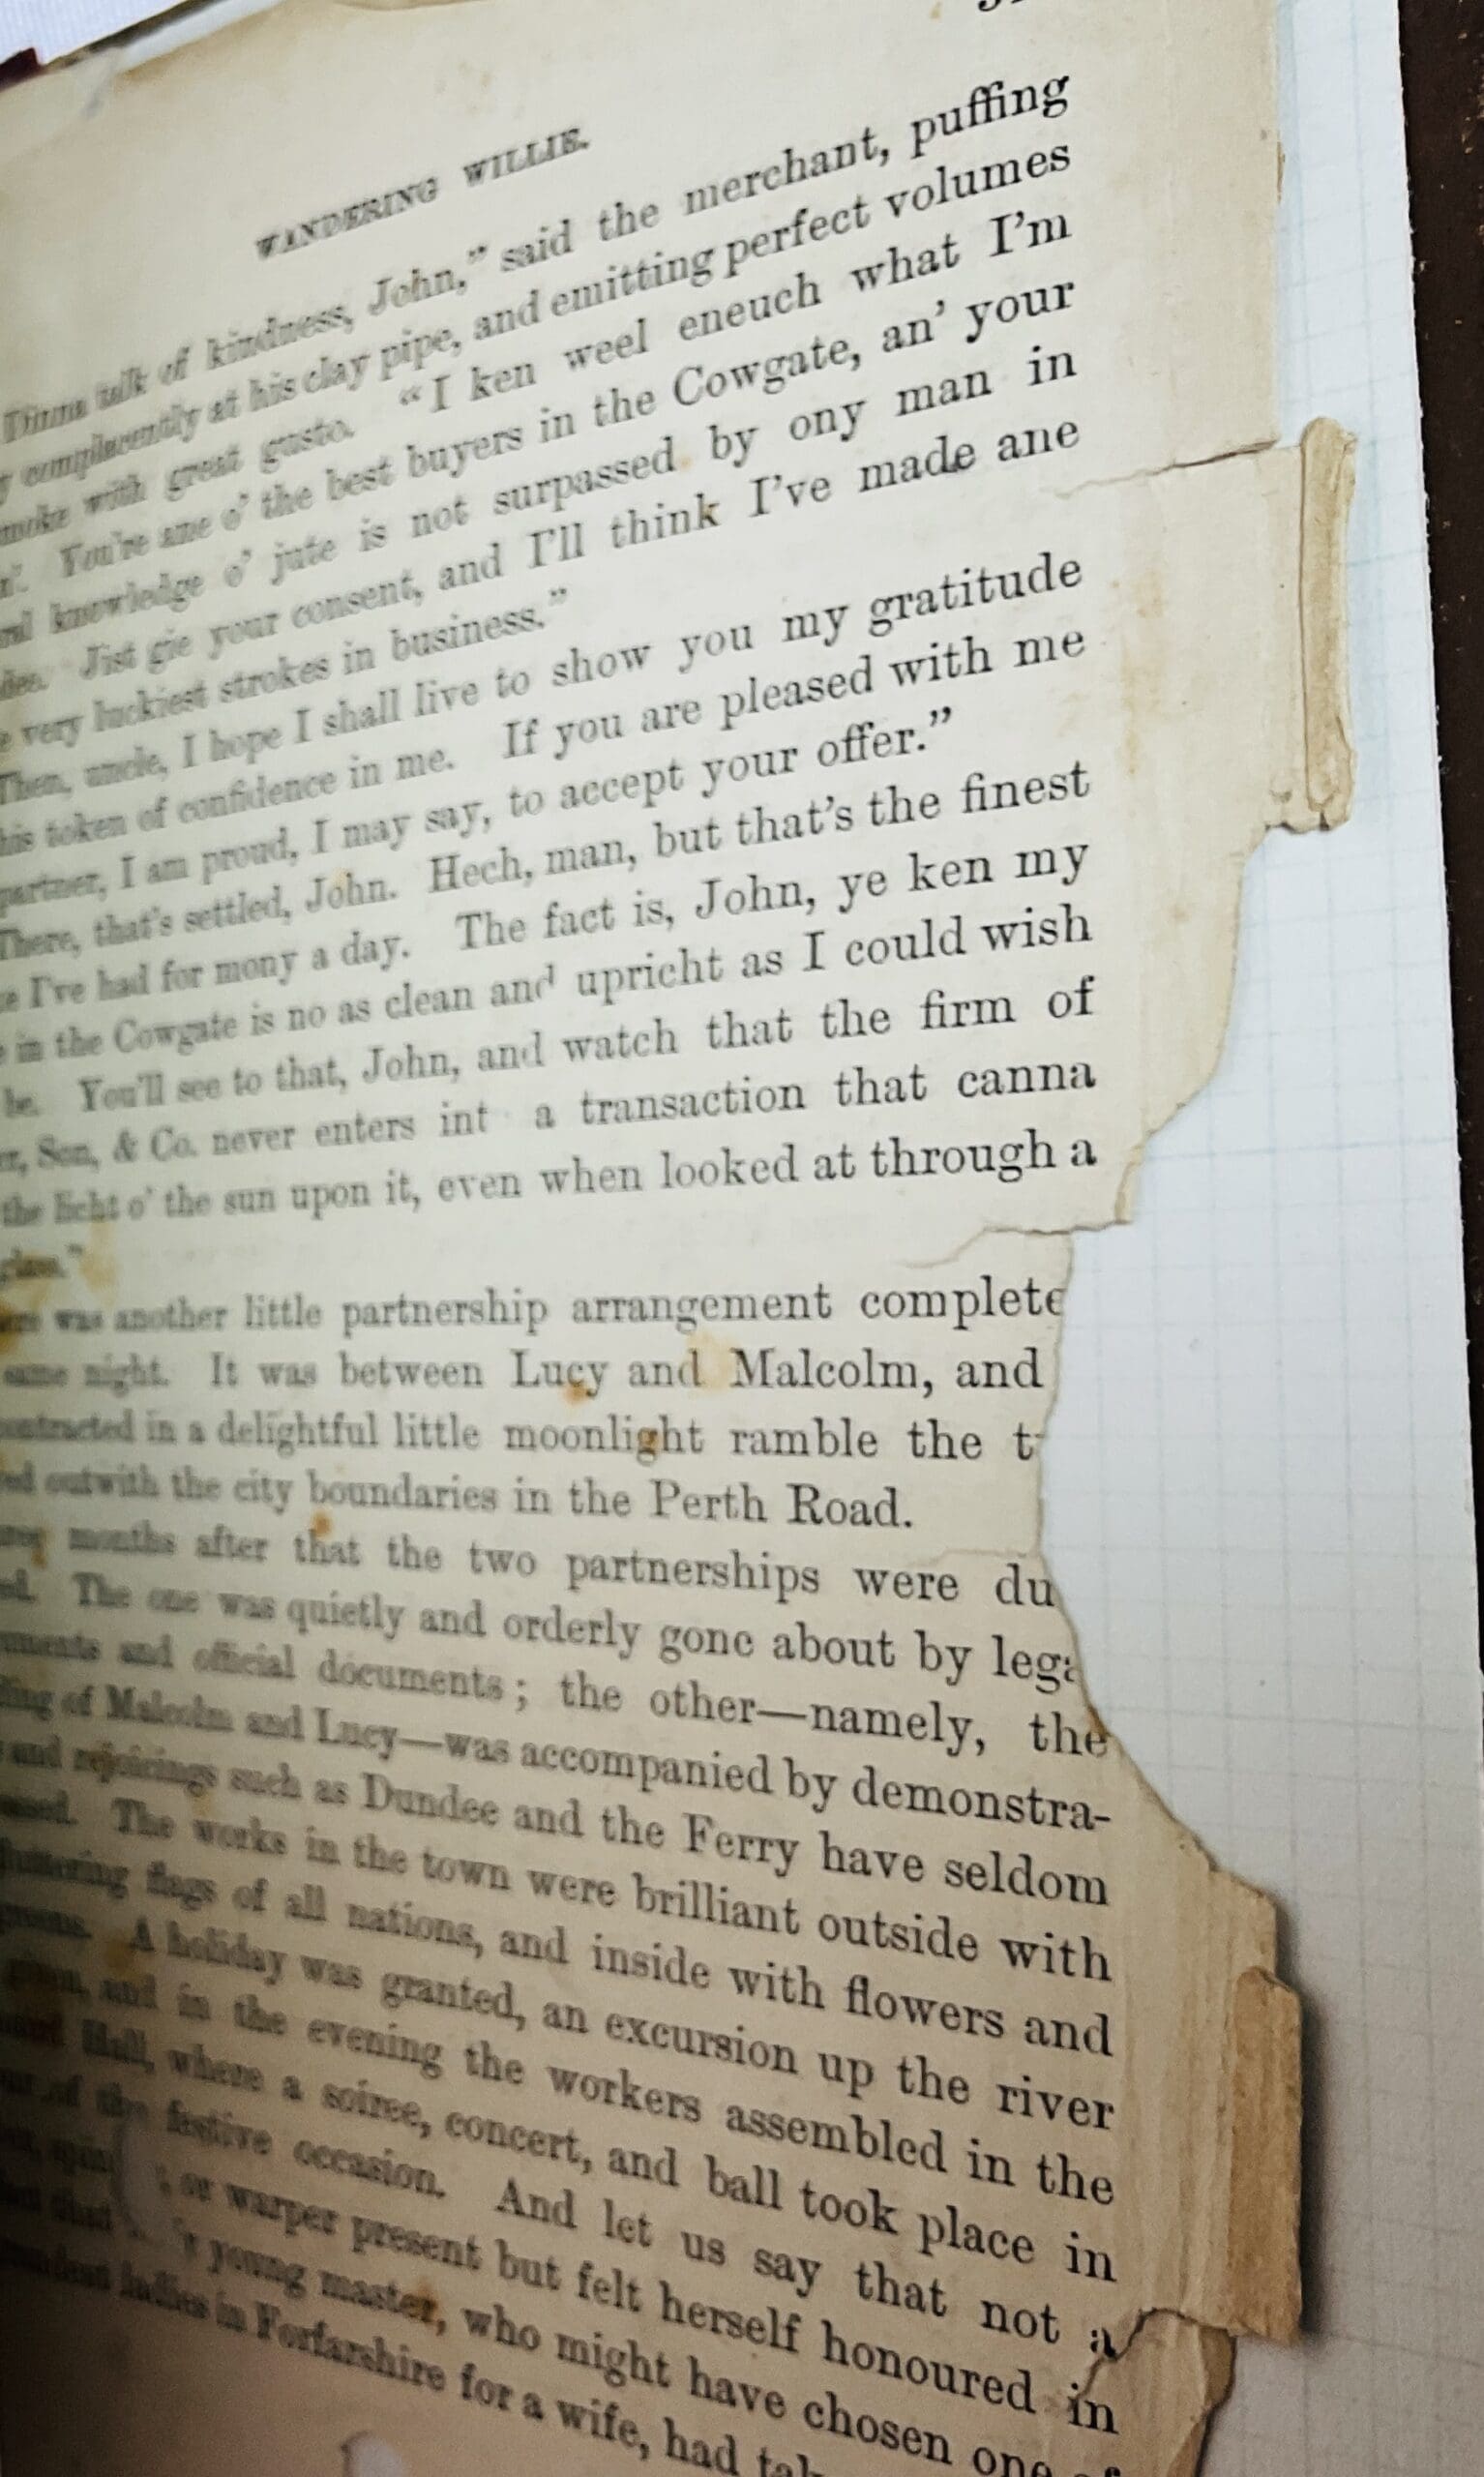 WANDERING WILLIE.
Dinna talk of kindness, John,” said the merchant, puffing
complacently at his clay pipe, and emitting perfect volumes
smoke with great gusto. “I ken weel eneuch what I’m
You’re ane o’ the best buyers in the Cowgate, an’ your
knowledge o’ jute is not surpassed by ony man in
Jist gie your consent, and I’ll think I’ve made ane
very luckiest strokes in business.”
Then, uncle, I hope I shall live to show you my gratitude
this token of confidence in me. If you are pleased with me
partner, I am proud, I may say, to accept your offer.”
There, that’s settled, John. Hech, man, but that’s the finest
I’ve had for mony a day. The fact is, John, ye ken my
in the Cowgate is no as clean and upricht as I could wish
be. You’ll see to that, John, and watch that the firm of
Son, & Co. never enters int a transaction that canna
the licht o’ the sun upon it, even when looked at through a
was another little partnership arrangement complete
same night. It was between Lucy and Malcolm, and
contracted in a delightful little moonlight ramble the t
outwith the city boundaries in the Perth Road.
months after that the two partnerships were du
The one was quietly and orderly gone about by lega
and official documents; the other—namely, the
of Malcolm and Lucy—was accompanied by demonstra-
and rejoicings such as Dundee and the Ferry have seldom
The works in the town were brilliant outside with
fluttering flags of all nations, and inside with flowers and
A holiday was granted, an excursion up the river
and in the evening the workers assembled in the
Hall, where a soiree, concert, and ball took place in
of the festive occasion. And let us say that not a
or warper present but felt herself honoured in
that young master, who might have chosen one of
ladies in Forfarshire for a wife, had